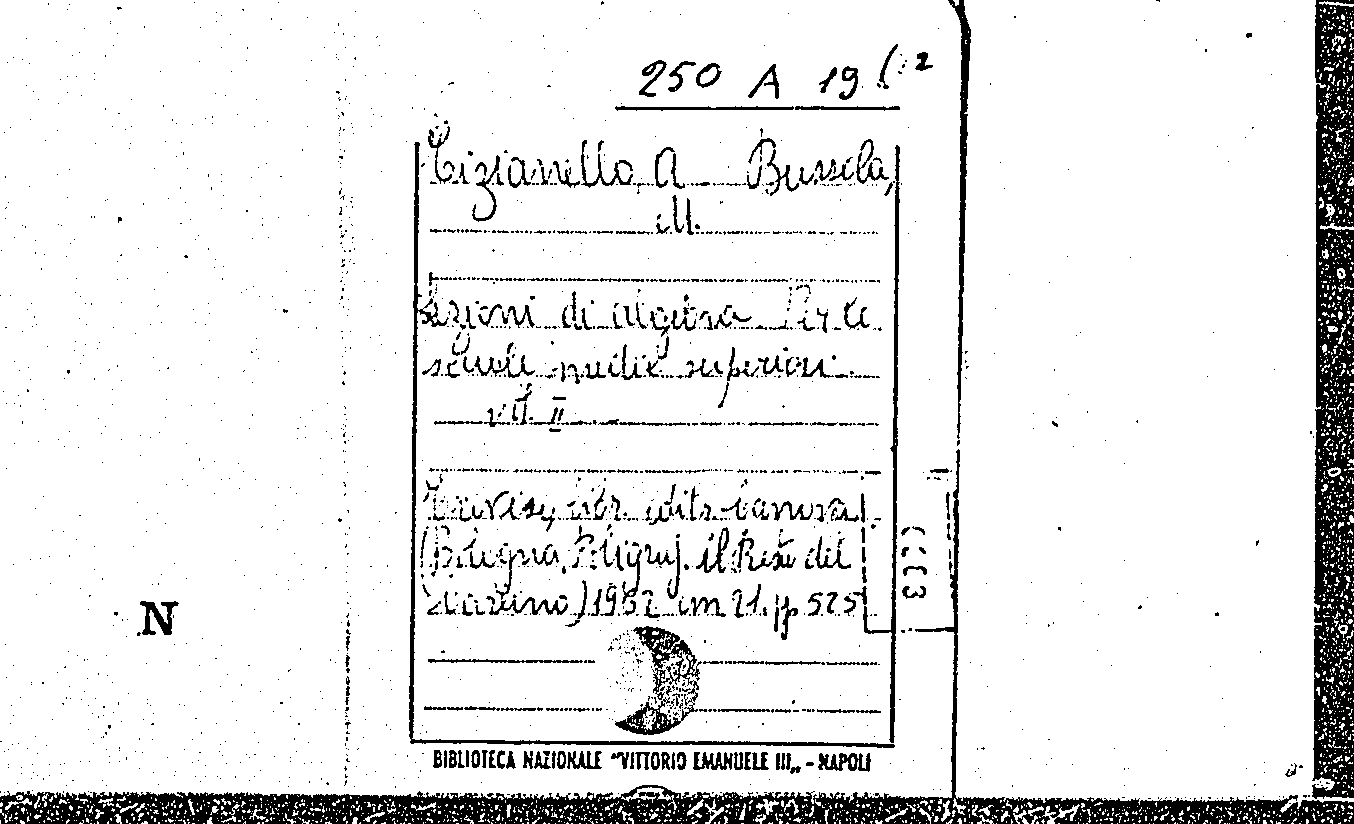 250 A 19 (2
Tizianello, A Bussola,
M.
Lezioni di algebra Per le
scuole medie superiori.
vol. II
Treviso, libr. edit. Canova
(Bologna, Poligraf. il Resto del
Carlino) 1952 in 21. pp 525
N
BIBLIOTECA NAZIONALE "VITTORIO EMANUELE III„ - NAPOLI